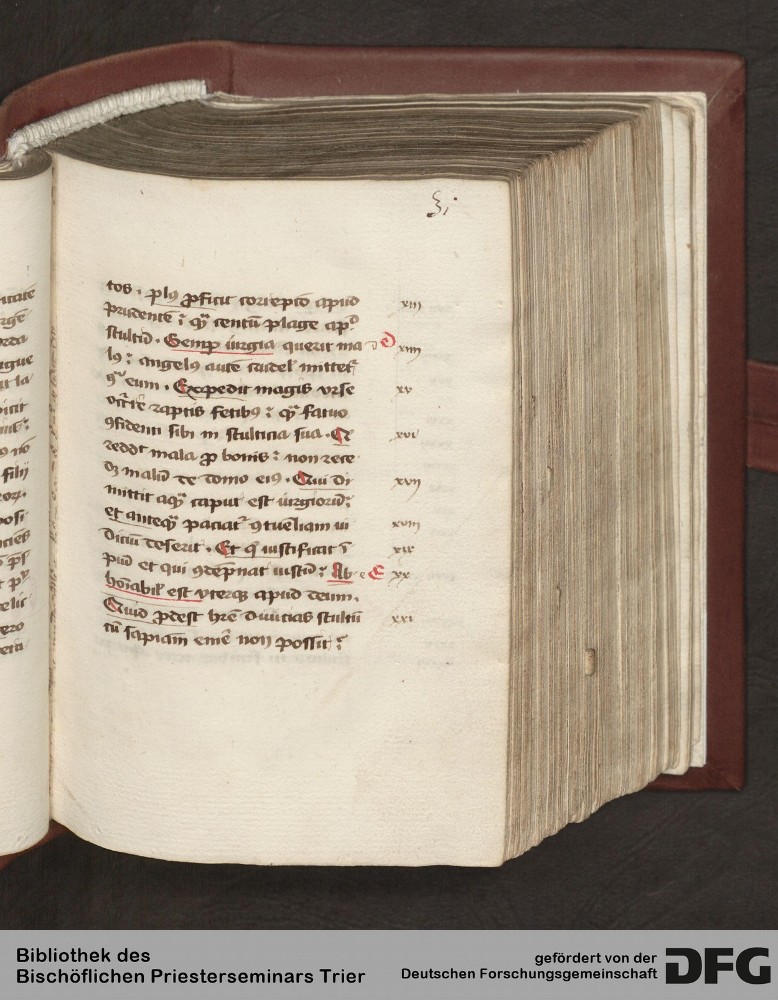 31
tos . plꝰ ꝓficit correptō apud xiii
prudentē : qͣ centū plage apᵈ
stultū . Semꝑ iurgia querit ma D xiiii
lꝰ : angelꝰ autē crudel̓ mittet᷑
ꝯͣ eum . Expedit magis vrse xv
occ̓re raptis fetibꝰ : qͣ fatuo
ꝯfidenti sibi in stulticia sua . Qͥ xvi
reddit mala ꝓ bonis : non rece
dꝫ malū de domo eiꝰ . Qui di xvii
mittit aqͣ caput est iurgiorū :
et anteqͣ paciat᷑ ꝯtumeliam iu xviii
diciū deserit . Et qͥ iustificat ī xix
piū et qui ꝯdēpnat iustū : Ab E xx
hoīabil̓ est vterqꝫ apud deum .
Quid ꝓdest hr̄e diuicias stultū xxi
cū sapiam̄ emē non possit :
Bibliothek des
Bischöflichen Priesterseminars Trier
gefördert von der
Deutschen Forschungsgemeinschaft
DFG